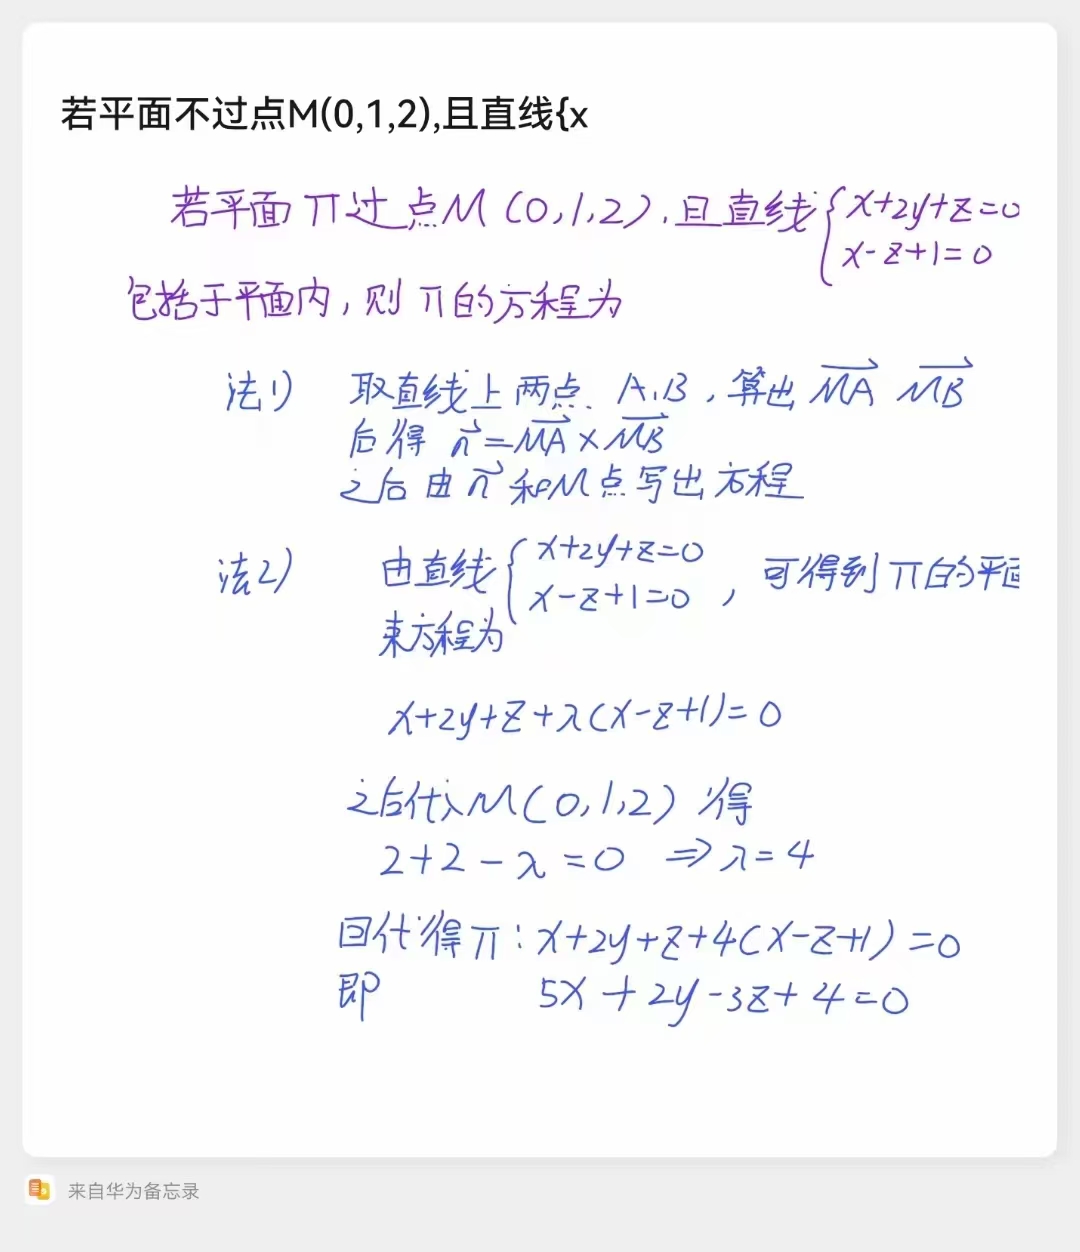 若平面不过点M(0,1,2),且直线{x
若平面π过点M(0,1,2),且直线{x+2y+z=0
x-z+1=0
包括于平面内,则π的方程为
法1) 取直线上两点、A,B,算出MA→ MB→
后得 n→=MA→×MB→
之后由n→和M点写出方程
法2) 由直线{x+2y+z=0
x-z+1=0,可得到π的平面
束方程为
x+2y+z+λ(x-z+1)=0
之后代入M(0,1,2)得
2+2-λ=0 ⇒λ=4
回代得π:x+2y+z+4(x-z+1)=0
即 5x+2y-3z+4=0
来自华为备忘录